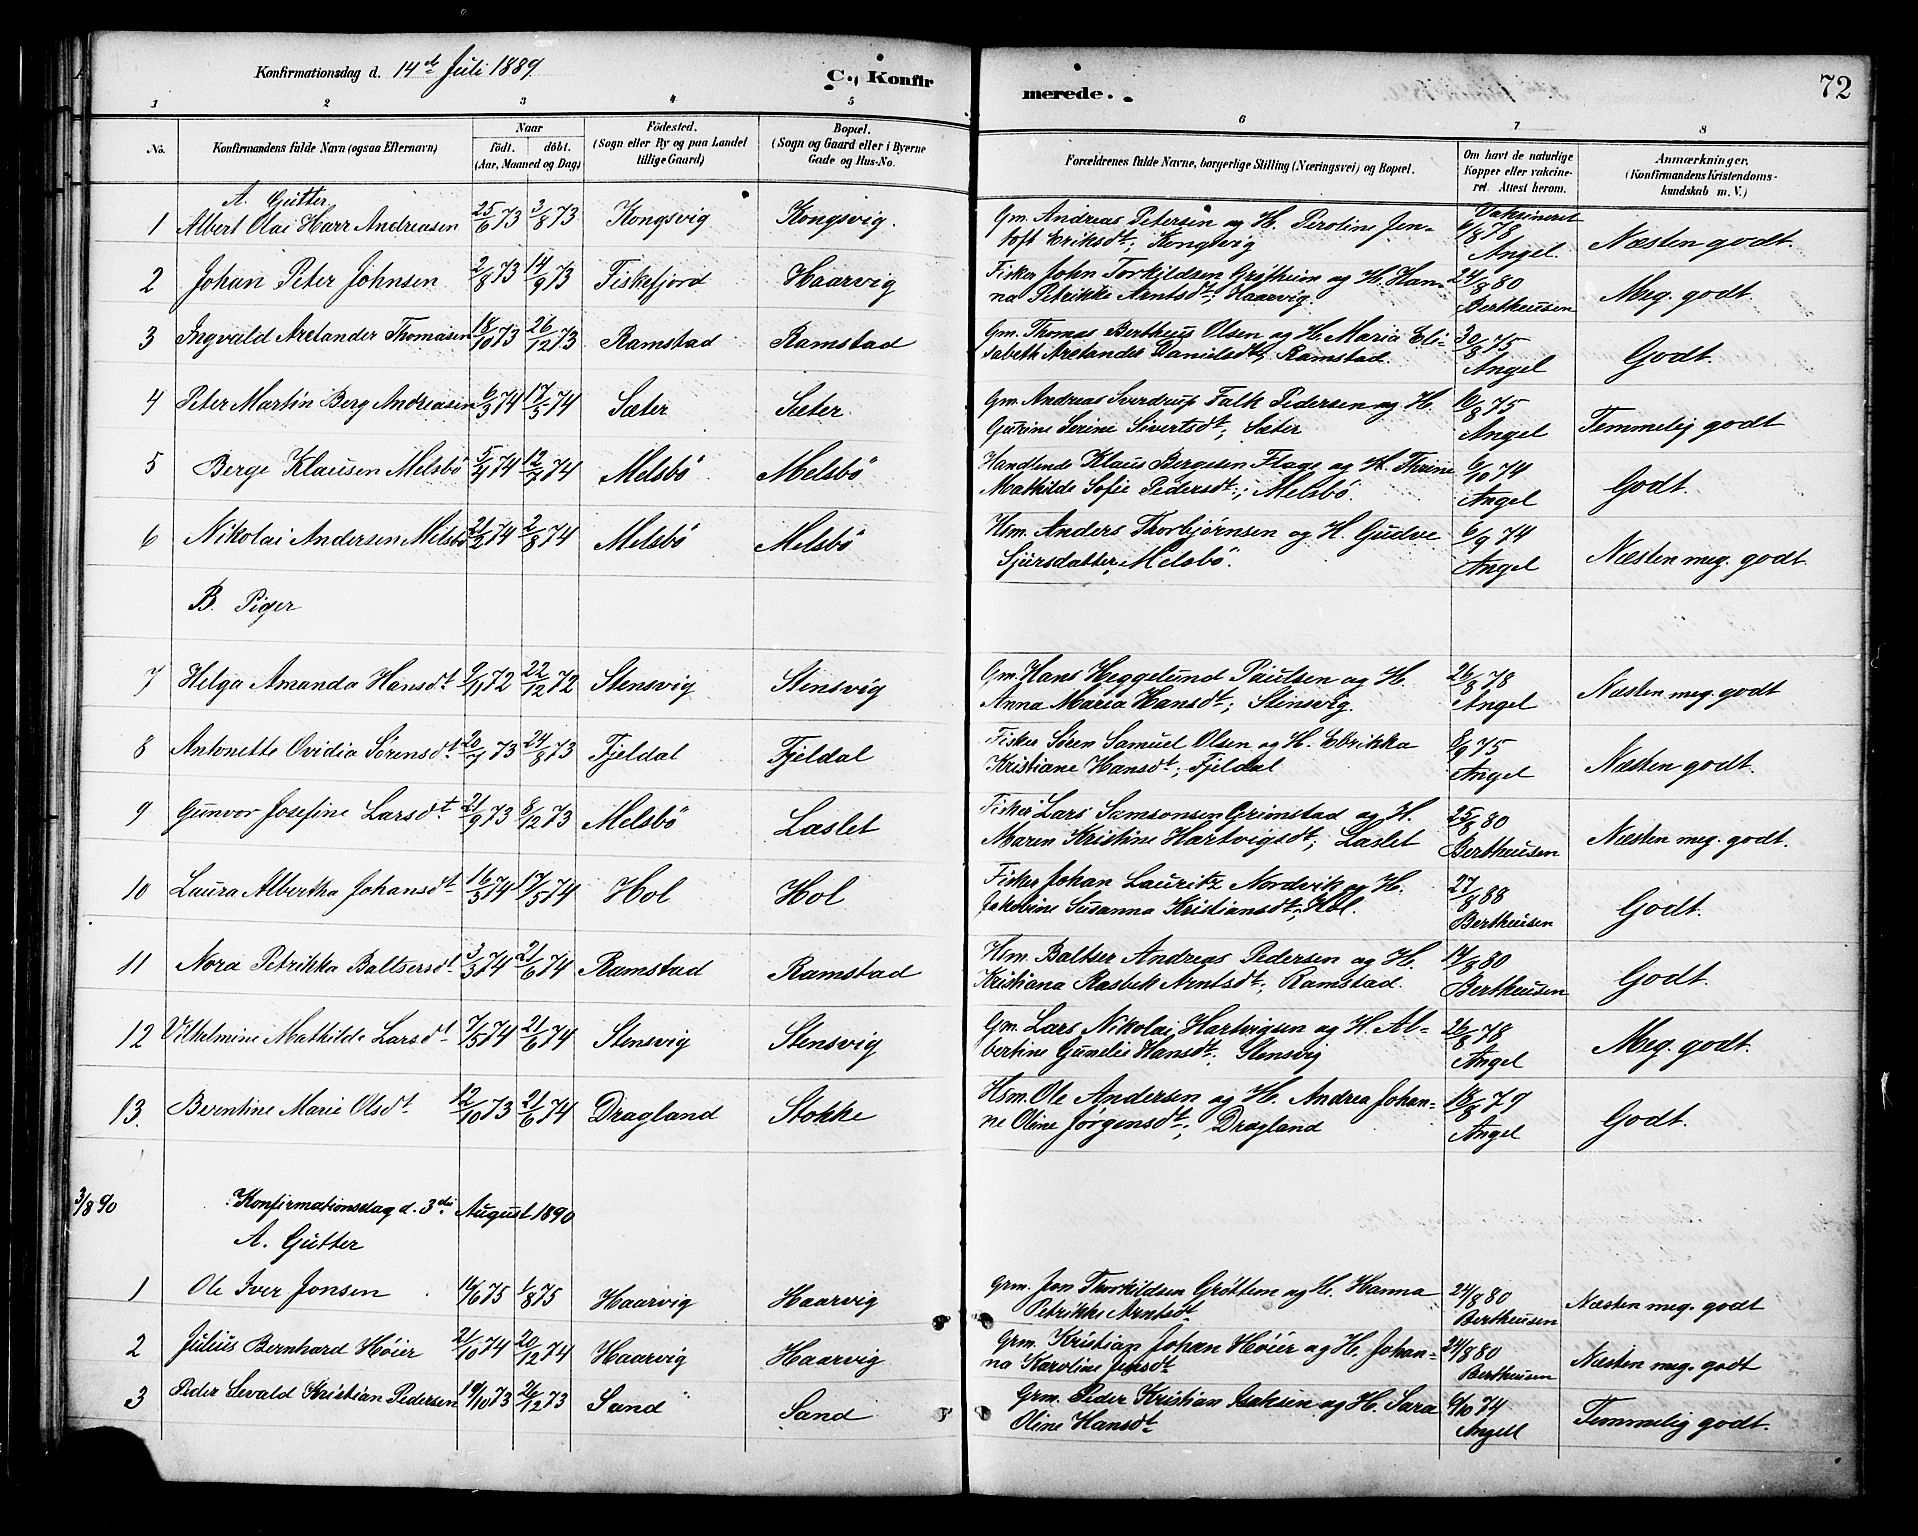 Konfirmationsdag d. 14de Juli 1889
C., Konfir
merede.
72
1 2 3 4 5 6 7 8
No. Konfirmandens fulde Navn (ogsaa Efternavn) Naar födt. döbt. (Aar, Maaned og Dag) Födested. (Sogn eller By og paa Landet tillige Gaard) Bopæl. (Sogn og Gaard eller i Byerne Gade og Hus-No. Forældrenes fulde Navne, borgerlige Stilling (Næringsvei) og Bopæl. Om havt de naturlige Kopper eller vakcineret. Attest herom. Anmærkninger. (Konfirmandens Kristendomskundskab m. V.)
A. Gutter
1 Albert Olai Harr Andreasen 25/6 73 3/8 73 Kongsvig Kongsvig. Gm. Andreas Petersen og H. Peroline Jen- Vaksineret 6/8 78
toft Eriksdt; Kongsvig Angel. Næsten godt.
2 Johan Peter Johnsen 2/8 73 14/9 73 Fiskefjord Haarvig Fisker John Torkildsen Grøtheim og H. Han- 24/8 80
na Petrikke Arntsdt; Haarvig. Bertheusen Meg. godt.
3 Ingvald Aretander Thomasen 18/10 73 26/12 73 Ramstad Ramstad Gm. Thomas Bertheus Olsen og H. Maria Eli- 30/8 75
sabeth Aretander Danielsdt; Ramstad. Angel Godt.
4 Peter Martin Berg Andreasen 6/3 74 17/5 74 Sæter Sæter. Gm. Andreas Sverdrup Falk Pedersen og H. 10/8 75
Gurine Serine Sivertsdt; Sæter Angel Temmelig godt
5 Berge Klausen Melsbö 5/4 74 12/7 74 Melsbö Melsbö Handlende Klaus Bergesen Flage og H. Thrine 6/10 74
Mathilde Sofie Pedersdt; Melsbö. Angel Godt.
6 Nikolai Andersen Melsbö 21/2 74 2/8 74 Melsbö Melsbö Hsm. Anders Thorbjørnsen og H. Gudve 6/9 74
Sjursdatter, Melsbö. Angel Næsten meg. godt.
B. Piger
7 Helga Amanda Hansdt 9/11 72 22/12 72 Stensvig Stensvig Gm. Hans Heggelund Paulsen og H. 26/8 78
Anna Maria Hansdt; Stensvig. Angel Næsten meg. godt
8 Antonette Ovidia Sörensdt 20/7 73 24/8 73 Fjeldal Fjeldal Fisker Sören Samuel Olsen og H. Ebrikka 8/9 75
Kristiane Hansdt; Fjeldal Angel Næsten godt.
9 Gunvor Josefine Larsdt 21/9 73 8/12 73 Melsbö Laslet Fisker Lars Samsonsen Grönstad og H. 25/8 80
Maren Kristine Hartvigsdt; Laslet Bertheusen Næsten meg. godt.
10 Laura Albertha Johansdt 16/3 74 17/5 74 Hol Hol Fisker Johan Lauritz Nordvik og H. 27/8 88
Jakobine Susanna Kristiansdt; Hol. Bertheusen Godt.
11 Nora Petrikka Baltsersdt 3/3 74 21/6 74 Ramstad Ramstad Hsm. Baltser Andreas Pedersen og H. 14/8 80
Kristiana Rasbek Arntsdt; Ramstad. Bertheusen Godt.
12 Vilhelmine Mathilde Larsdt 7/5 74 21/6 74 Stensvig Stensvig Gm. Lars Nikolai Hartvigsen og H. Al- 26/8 78
bertine Gunelie Hansdt; Stensvig Angel Meg. godt.
13. Berntine Marie Olsdt 12/10 73 21/6 74 Dragland Stokke Hsm. Ole Andersen og H. Andrea Johan- 18/8 79
ne Oline Jørgensdt; Dragland Angel Godt.
3/8 90 Konfirmationsdag d. 3die August 1890
A. Gutter
1 Ole Iver Jonsen 14/6 75 1/8 75 Haarvig Haarvig Grm. Jon Thorkildsen Gröttem og H. Hanna 24/8 80
Petrikke Arntsdt Bertheusen Næsten meg. godt
2 Julius Bernhard Høier 21/10 74 20/12 74 Haarvig Haarvig Grm. Kristian Johan Høier og H. Johan- 24/8 80
na Karoline Jensdt Bertheusen Næsten meg. godt
3 Peder Sevald Kristian Pedersen 19/10 73 26/12 73 Sand Sand Grm. Peder Kristian Isaksen og H. Sara 6/10 74
Oline Hansdt Angell Temmelig godt.